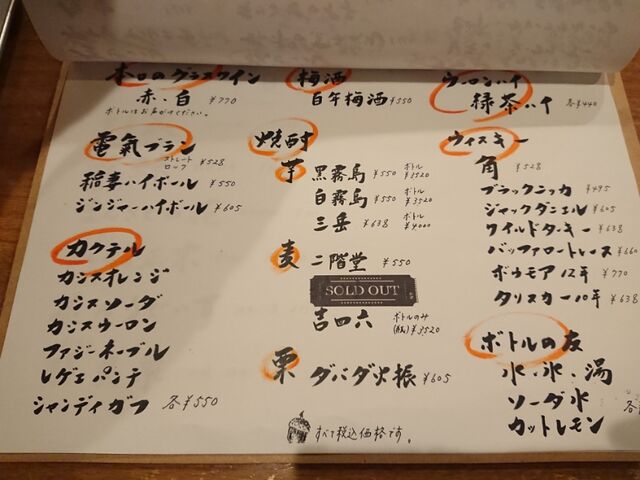 本日のグラスワイン
赤・白 ¥770
ボトルはお声がけください。
電氣ブラン
ストレート
ロック ¥528
稲妻ハイボール ¥550
ジンジャーハイボール ¥605
カクテル
カシスオレンジ
カシスソーダ
カシスウーロン
ファジーネーブル
レゲエパンチ
シャンディガフ 各¥550
梅酒
白午梅酒 ¥550
焼酎
芋
黒霧島 ¥550 ボトル ¥3520
白霧島 ¥550 ボトル ¥3520
三岳 ¥638 ボトル ¥4000
麦
二階堂 ¥550
SOLD OUT
吉四六 ボトルのみ
¥3520
栗
ダバダ火振 ¥605
すべて税込価格です。
ウーロンハイ
緑茶ハイ 各¥440
ウィスキー
角 ¥528
ブラックニッカ ¥495
ジャックダニエル ¥605
ワイルドターキー ¥638
バッファロートレース ¥660
ボウモア12年 ¥770
タリスカー10年 ¥638
ボトルの友
水・氷・湯
ソーダ水
カットレモン
各¥